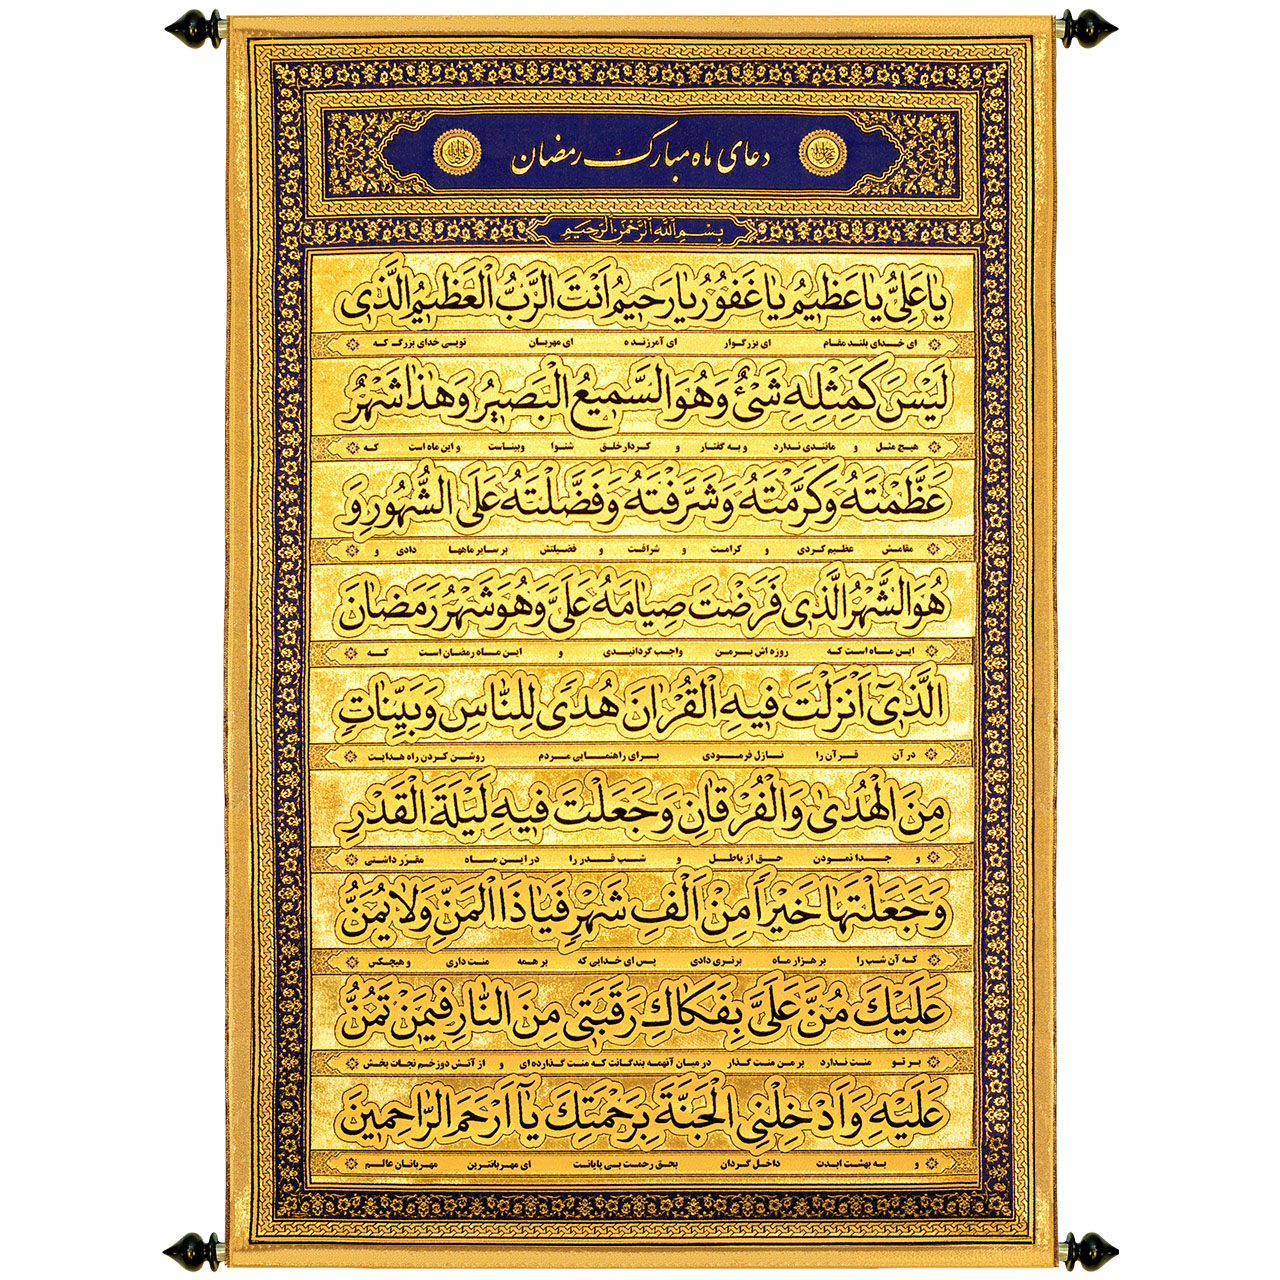 دعای ماه مبارک رمضان
بِسْمِ اللهِ الرَّحْمنِ الرَّحِیمِ
یا عَلِیُّ یا عَظیمُ یا غَفُورُ یا رَحیمُ اَنْتَ الرَّبُّ الْعَظیمُ الَّذی
ای خدای بلند مقام ای بزرگوار ای آمرزنده ای مهربان تویی خدای بزرگ که
لَیْسَ کَمِثْلِهِ شَیْءٌ وَهُوَ السَّمیعُ الْبَصیرُ وَهٰذا شَهْرٌ
هیچ مثل و مانندی ندارد و به گفتار و کردار خلق شنوا وبیناست و این ماه است که
عَظَّمْتَهُ وَکَرَّمْتَهُ وَشَرَّفْتَهُ وَفَضَّلْتَهُ عَلَی الشُّهُورِ وَ
مقامش عظیم کردی و کرامت و شرافت و فضیلتش بر سایر ماهها دادی و
هُوَ الشَّهْرُ الَّذی فَرَضْتَ صِیامَهُ عَلَیَّ وَهُوَ شَهْرُ رَمَضانَ
این ماه است که روزه اش بر من واجب گردانیدی و این ماه رمضان است که
الَّذی اَنْزَلْتَ فیهِ الْقُرْانَ هُدًی لِلنّاسِ وَبَیِّناتٍ
در آن قرآن را نازل فرمودی برای راهنمایی مردم روشن کردن راه هدایت
مِنَ الْهُدیٰ وَالْفُرْقانِ وَجَعَلْتَ فیهِ لَیْلَةَ الْقَدْرِ
و جدا نمودن حق از باطل و شب قدر را در این ماه مقرّر داشتی
وَجَعَلْتَها خَیْراً مِنْ اَلْفِ شَهْرٍ فَیا ذَا الْمَنِّ وَلا یُمَنُّ
که آن شب را بر هزار ماه برتری دادی پس ای خدایی که بر همه منت داری و هیچکس
عَلَیْكَ مُنَّ عَلَیَّ بِفَکاكِ رَقَبَتی مِنَ النّارِ فیمَنْ تَمُنُّ
بر تو منت ندارد بر من منت گذار در میان آنهمه بندگانت که منت گذارده ای و از آتش دوزخم نجات بخش
عَلَیْهِ وَاَدْخِلْنِی الْجَنَّةَ بِرَحْمَتِكَ یا اَرْحَمَ الرّاحِمینَ
و به بهشت ابدت داخل گردان بحق رحمت بی پایانت ای مهربانترین مهربانان عالم